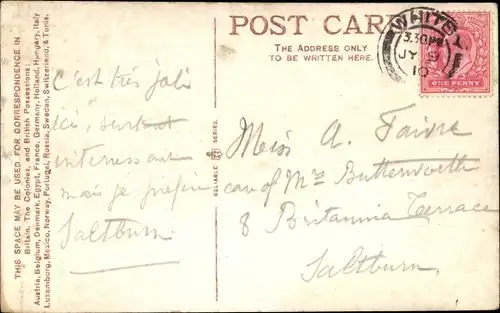 THIS SPACE MAY BE USED FOR CORRESPONDENCE IN
Britain, The Colonies, and British Possessions;
Austria, Belgium, Denmark, Egypt, France, Germany, Holland, Hungary, Italy
Luxemburg, Mexico, Norway, Portugal, Russia, Sweden, Switzerland, & Tunis.
POST CARD
THE ADDRESS ONLY
TO BE WRITTEN HERE.
WHITBY
3.30PM
JY 9
10
ONE PENNY
C'est très joli
ici, surtout
interessant
mais je préfère
Saltburn
RELIABLE
SERIES.
Miss A. Faivre
care of Mrs Butterworth
8 Britannia Terrace
Saltburn